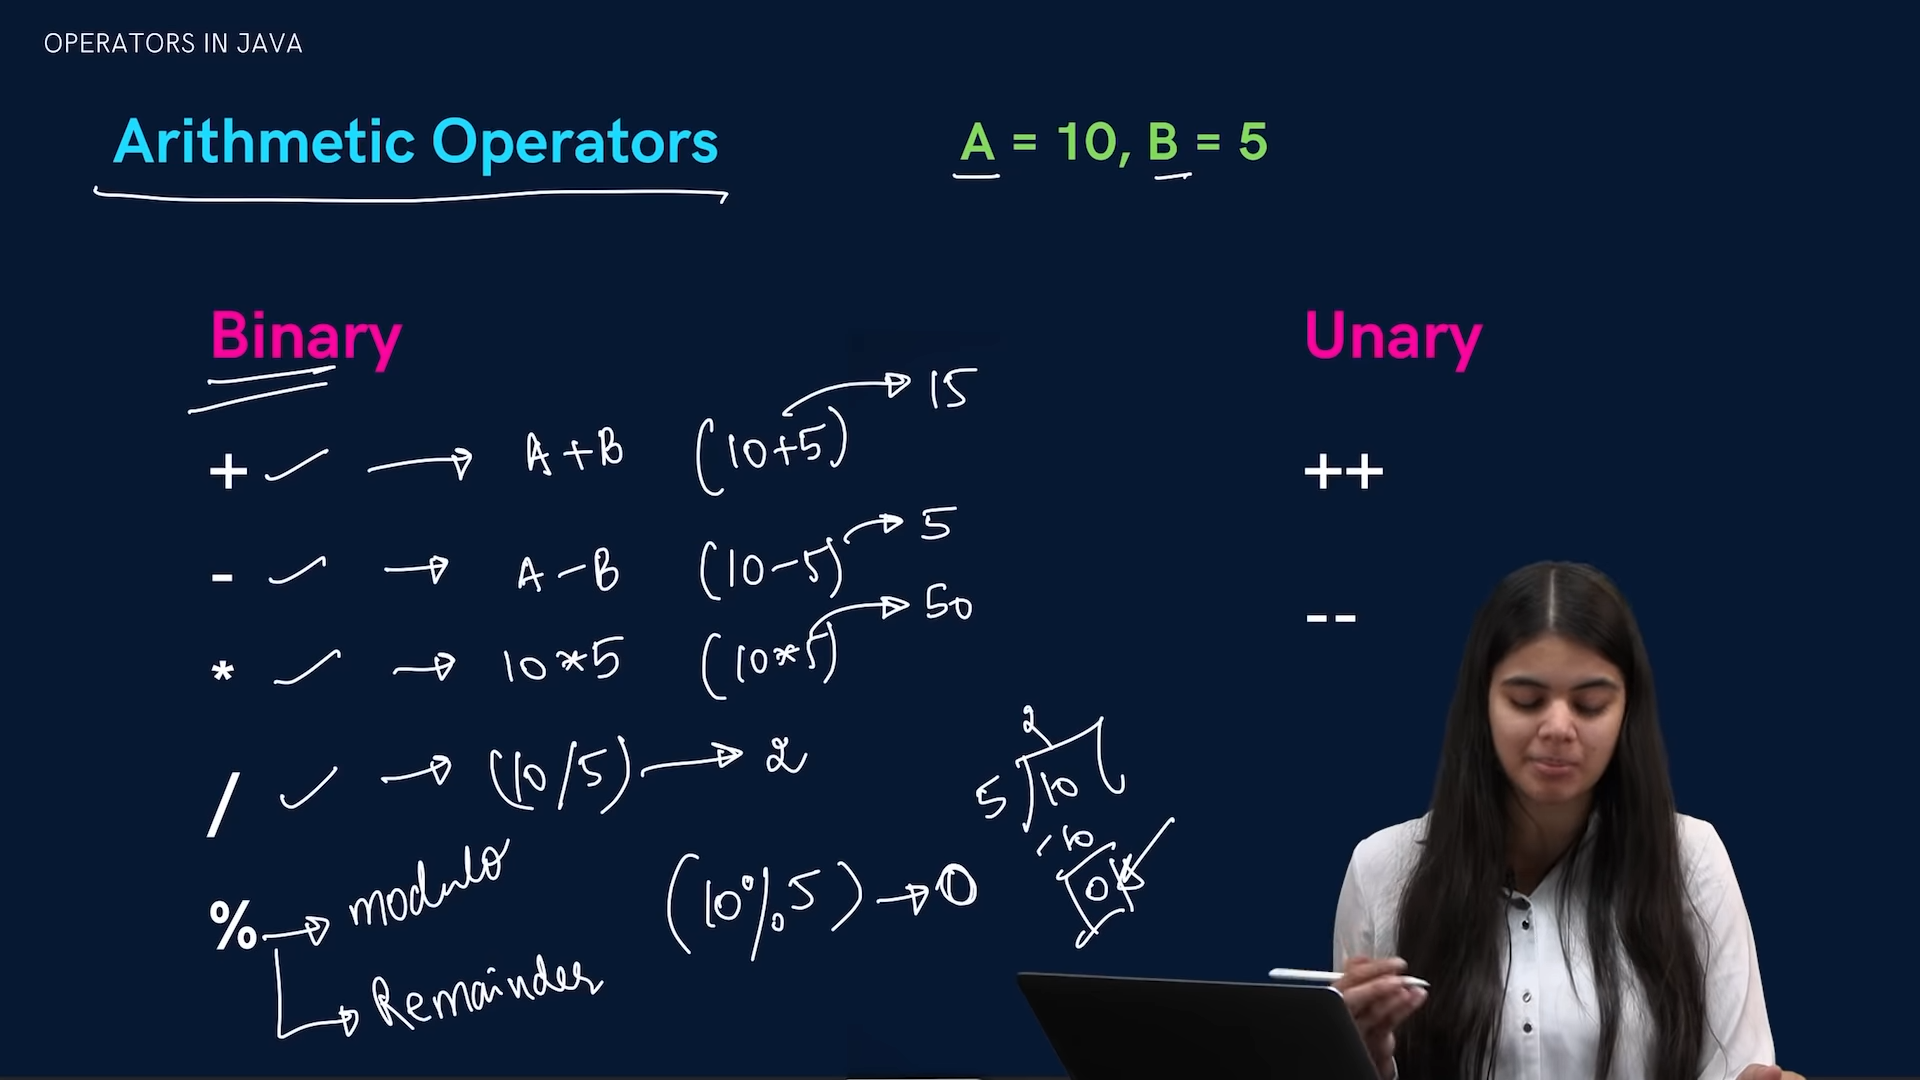 OPERATORS IN JAVA
Arithmetic Operators
A = 10, B = 5
Binary
+ → A+B (10+5) → 15
- → A-B (10-5) → 5
* → 10*5 (10*5) → 50
/ → (10/5) → 2
% → modulo (10%5) → 0
→ Remainder
2
5 10
-10
0
Unary
++
--